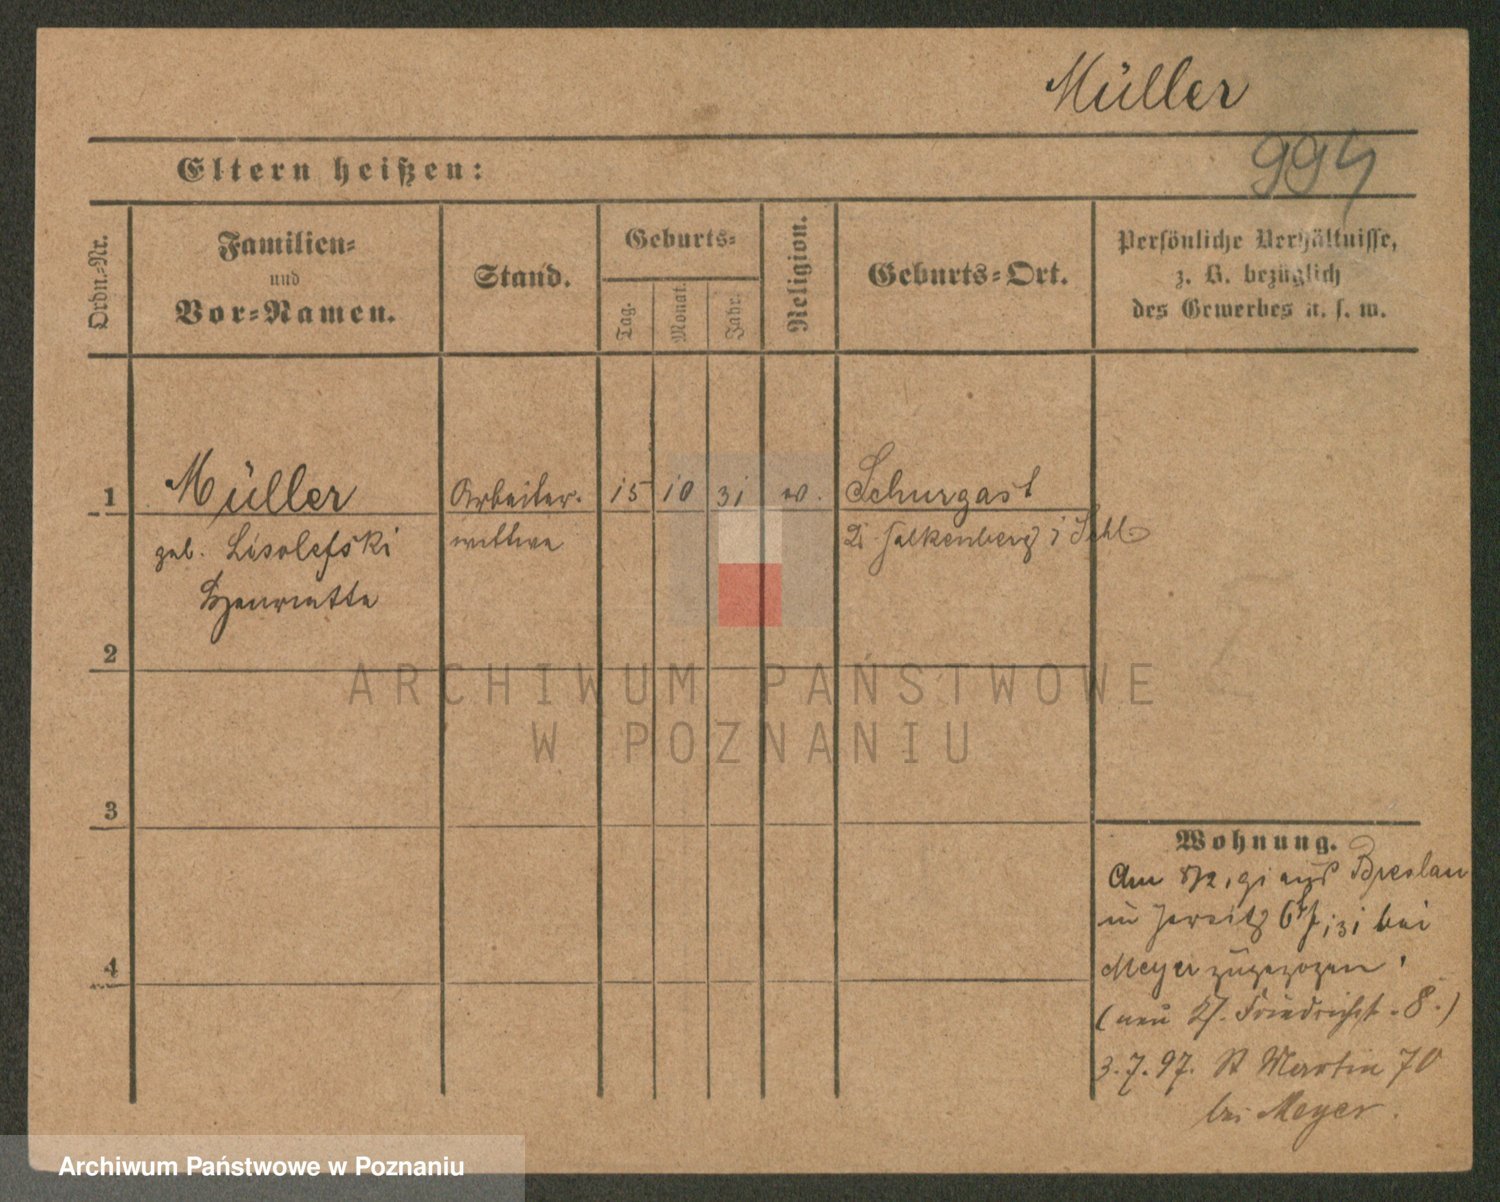 Müller
994
Eltern heißen:
Ordn.-Nr.
Familien-
und
Vor-Namen.
Stand.
Geburts-
Tag.
Monat.
Jahr.
Religion.
Geburts-Ort.
Persönliche Verhältnisse,
z. B. bezüglich
des Gewerbes u. s. w.
1
Müller
Arbeiter-
15
10
31
ev.
Schurgast
geb.
wittwe
Falkenberg i Schl.
Henriette
2
ARCHIWUM PAŃSTWOWE
W POZNANIU
3
Wohnung.
Am 91 aus Breslau
in Jersitz 131 bei
4
Meyer zugezogen.
(neu Friedrichst. 8.)
3.7.97. St Martin 70
bei Meyer.
Archiwum Państwowe w Poznaniu